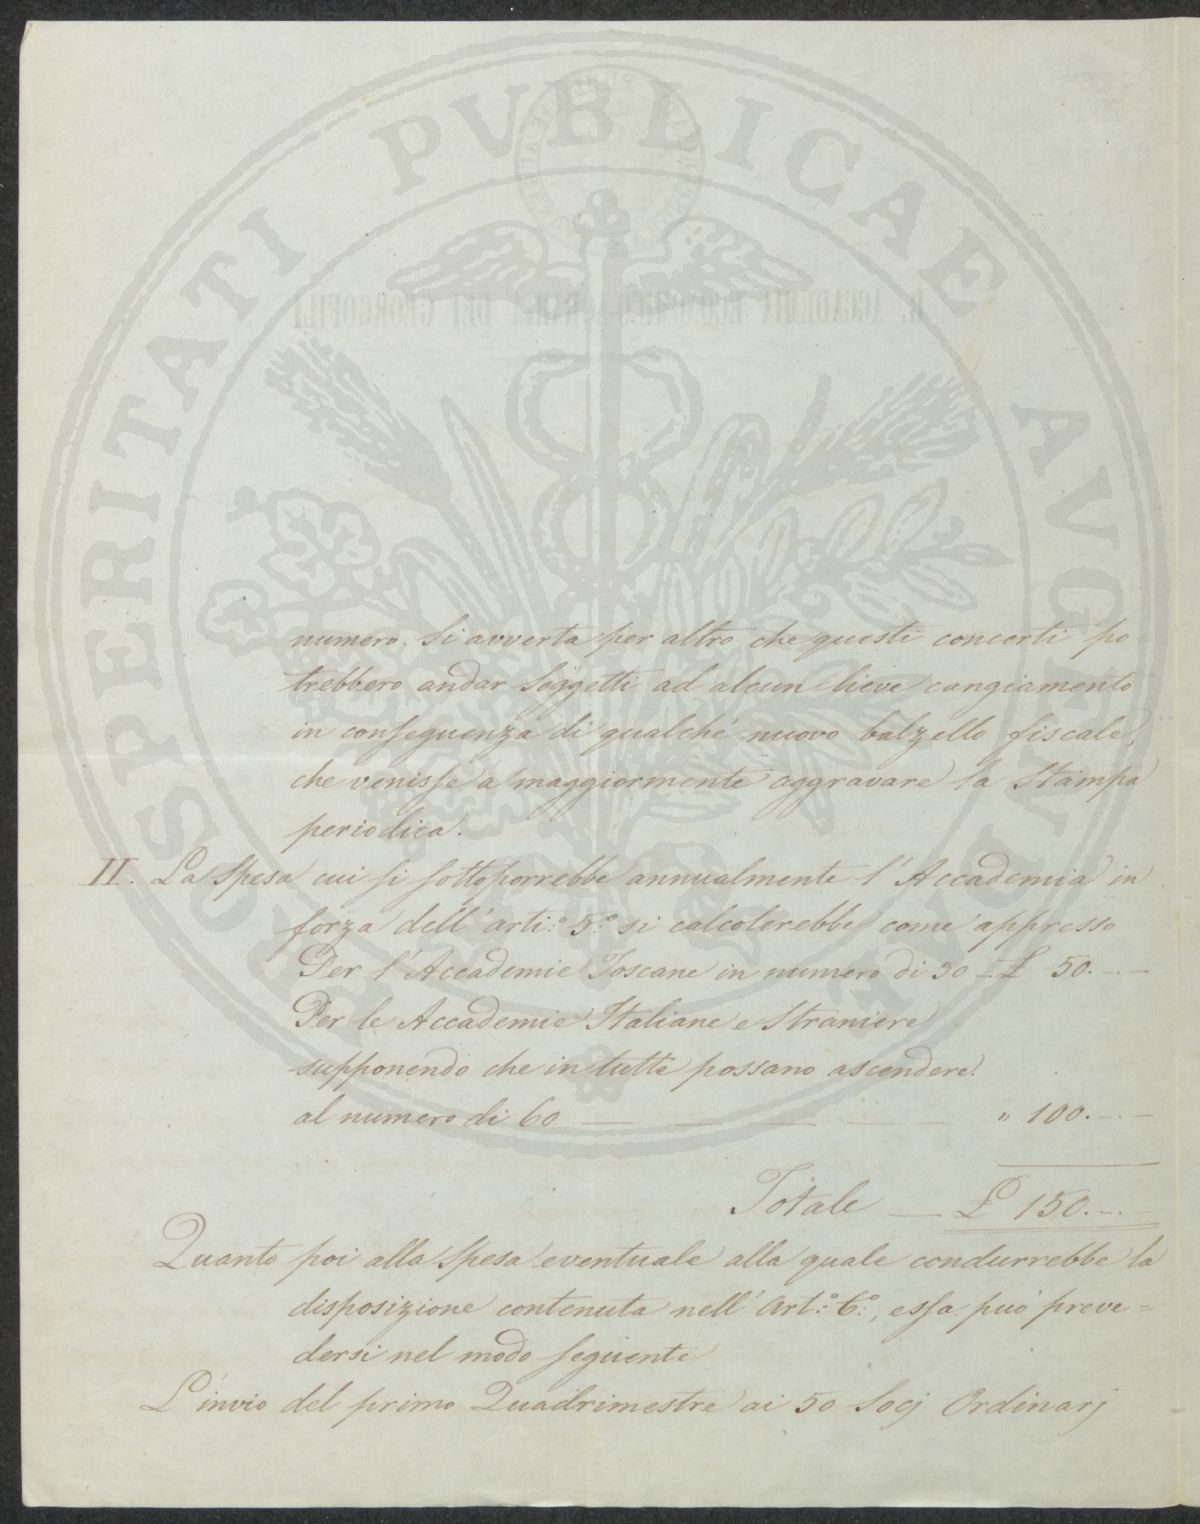 PROSPERITATI PVBLICAE AVGENDAE
R. ACCADEMIA ECONOMICO-AGRARIA DEI GEORGOFILI
numero. Si avverta per altro che questi concerti po-
trebbero andar soggetti ad alcun lieve cangiamento
in conseguenza di qualche nuovo balzello fiscale,
che venisse a maggiormente aggravare la Stampa
periodica.
II. La Spesa cui si sottoporrebbe annualmente l'Accademia in
forza dell'arti:º 5º: si calcolerebbe come appresso
Per l'Accademie Toscane in numero di 30 - £ 50.--
Per le Accademie Italiane e Straniere
supponendo che in tutte possano ascendere
al numero di 60 — — — — " 100.--
Totale — £ 150.--
Quanto poi alla Spesa eventuale alla quale condurrebbe la
disposizione contenuta nell'Art:º 6º:, essa può preve=
dersi nel modo seguente
L'invio del primo Quadrimestre ai 50 Socj Ordinarj